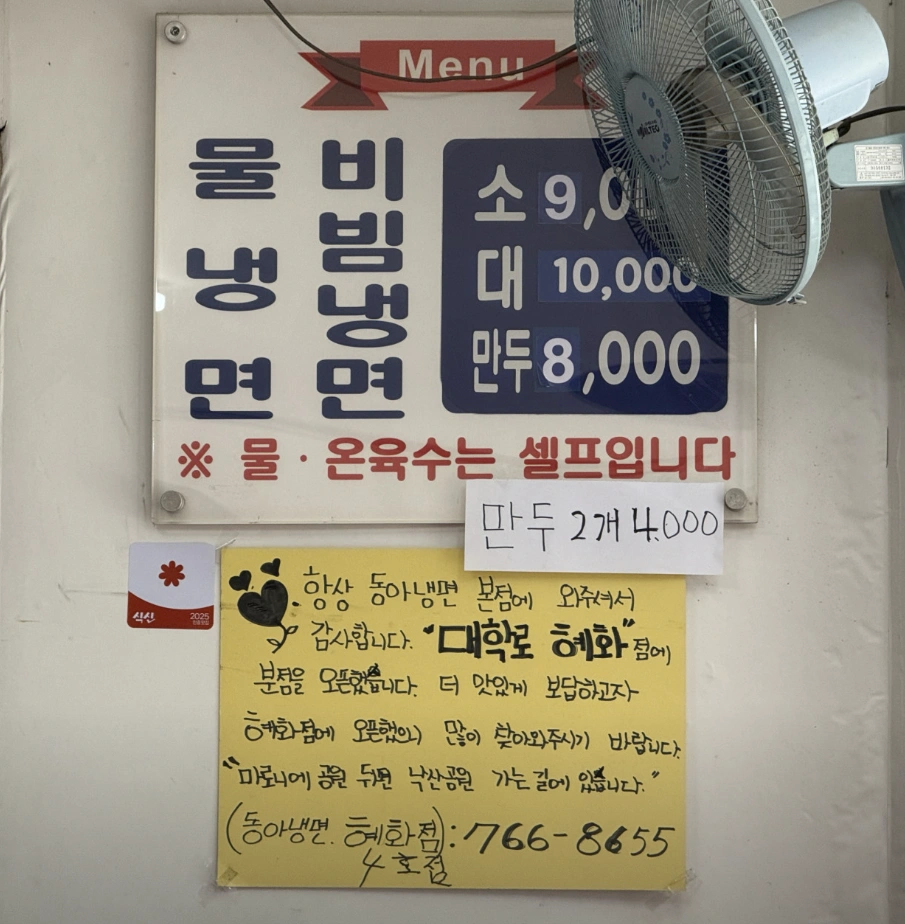 Menu
물냉면
비빔냉면
소 9,0
대 10,000
만두 8,000
※ 물 · 온육수는 셀프입니다
만두 2개 4.000
식신
2025
항상 동아냉면 본점에 와주셔서
감사합니다. "대학로 혜화"점에
분점을 오픈했습니다. 더 맛있게 보답하고자
혜화점에 오픈했으니 많이 찾아와주시기 바랍니다.
"마로니에 공원 뒤편 낙산공원 가는 길에 있습니다."
(동아냉면. 혜화점):766-8655
4호점